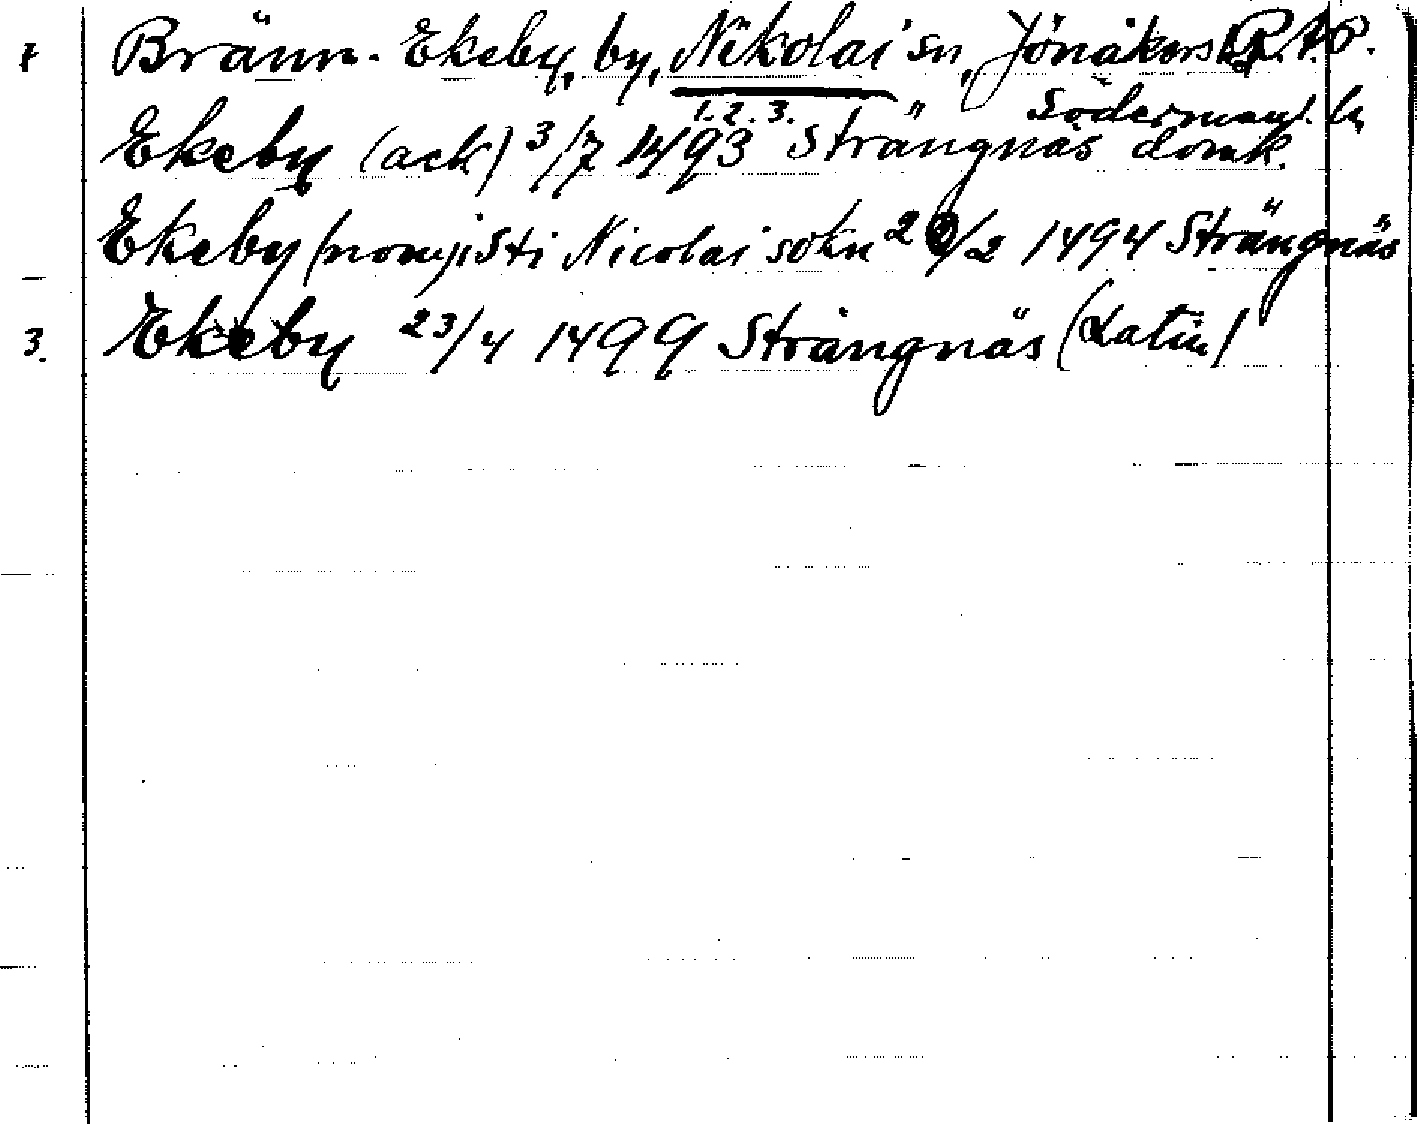 1 Bränn-Ekeby, by, Nikolai sn, Jönåkers hd R.A.P.
1.2.3. Södermanl. l.
Ekeby (ack) 3/7 1493 Strängnäs domk.
Ekeby (nom) i Sti Nicolai sokn 2 /2 1494 Strängnäs
3. Ekeby 23/4 1499 Strängnäs (Latin)